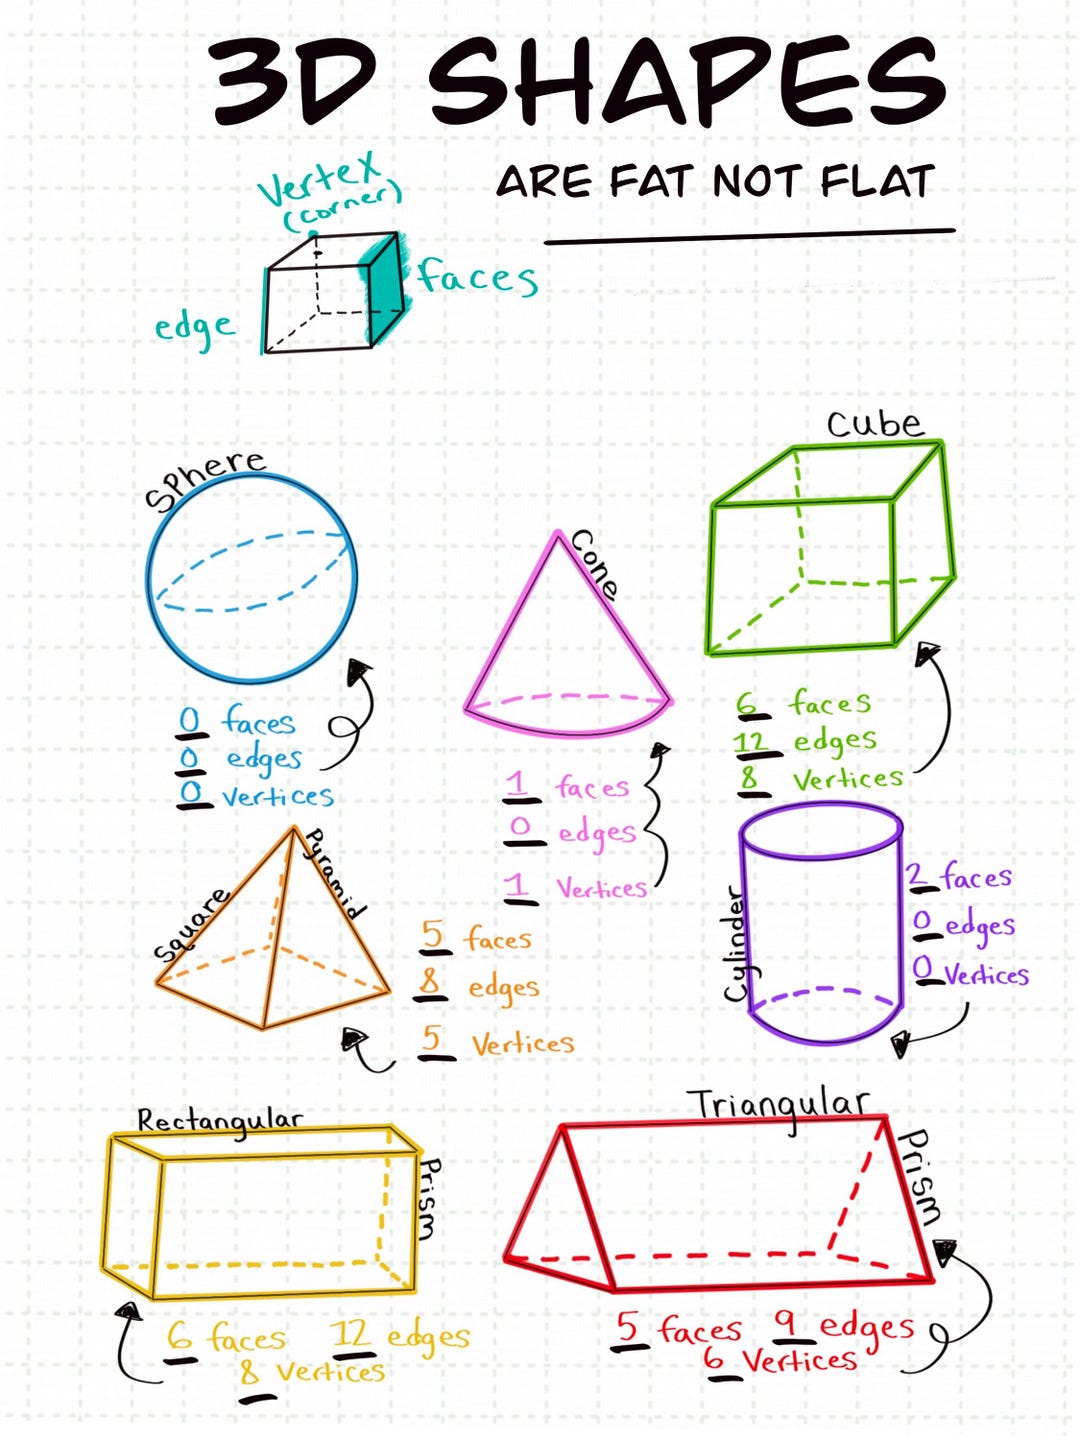 3D SHAPES
ARE FAT NOT FLAT
Vertex
(corner)
faces
edge
Sphere
0 faces
0 edges
0 vertices
Cone
1 faces
0 edges
1 Vertices
Cube
6 faces
12 edges
8 Vertices
Square Pyramid
5 faces
8 edges
5 Vertices
Cylinder
2 faces
0 edges
0 Vertices
Rectangular
Prism
6 faces 12 edges
8 Vertices
Triangular
Prism
5 faces 9 edges
6 Vertices